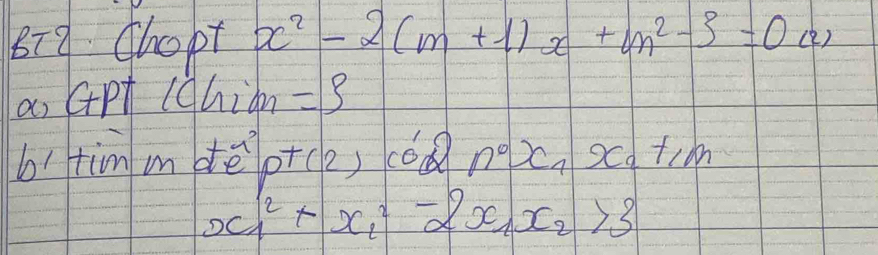 BT2. Cho pt x² - 2(m + 1)x + m² - 3 = 0 (2)
a, GPT Khi m = 3
b, tìm m để pt (2) có 2 n⁰ x₁ x₂ t/m
x₁² + x₂² - 2x₁x₂ > 3